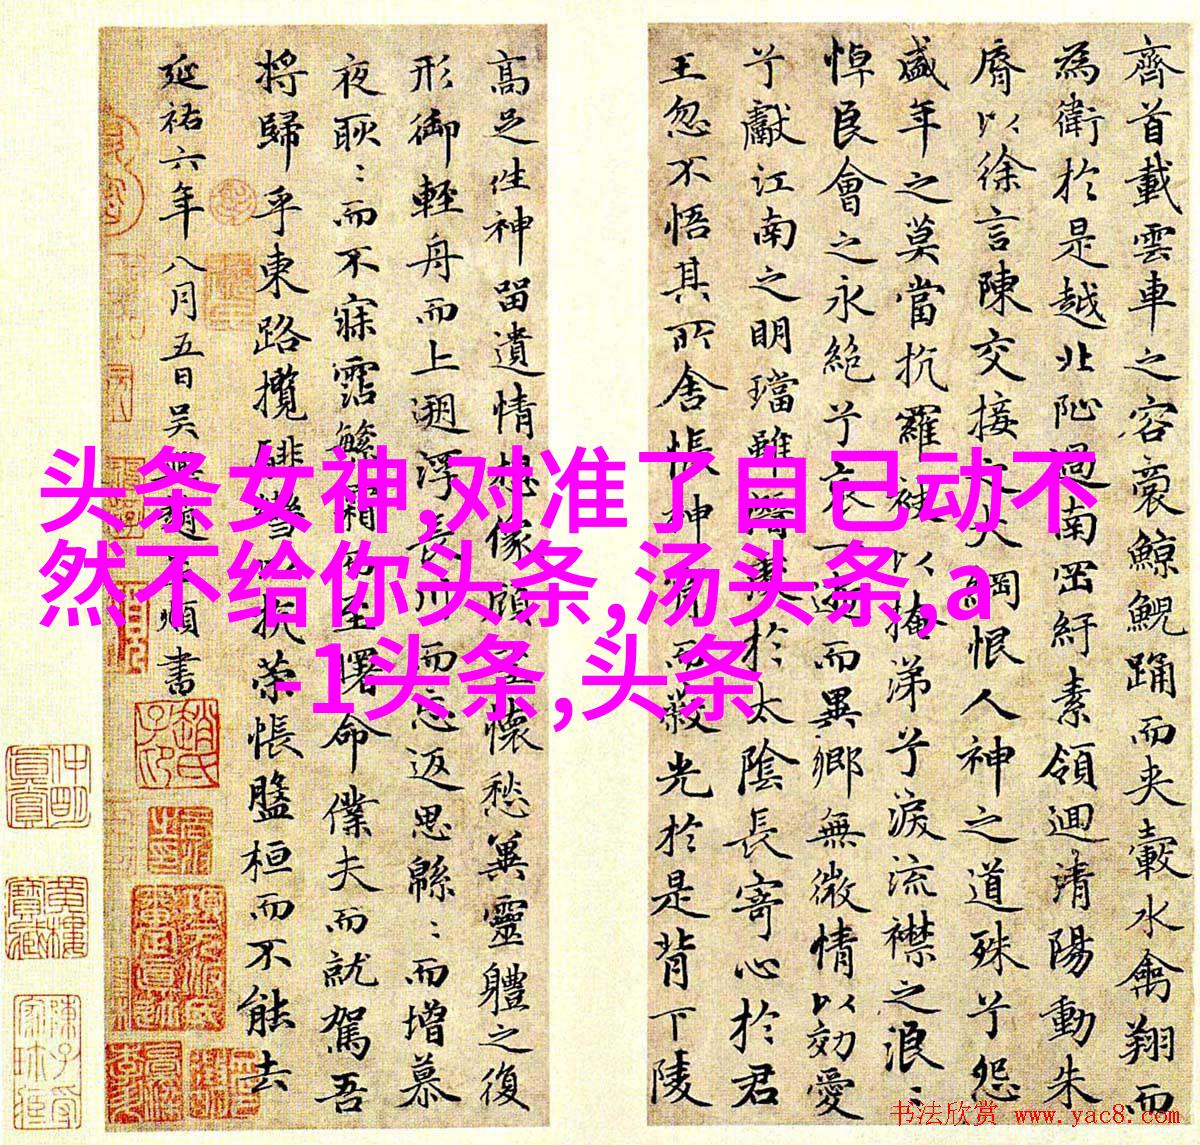 齊首載雲車之容裔鯨鯢踊而夾轂水禽翔而
為衛於是越北沚過南岡紆素領迴清陽動朱
脣以徐言陳交接之大綱恨人神之道殊兮怨
盛年之莫當抗羅袂以掩涕兮淚流襟之浪:
悼良會之永絕兮哀一逝而異鄉無微情以効愛
兮獻江南之明璫雖潛處於太陰長寄心於君
王忽不悟其所舍悵神宵而蔽光於是背下陵
高足往神留遺情想像顧望懷愁兾靈體之復
形御輕舟而上遡浮長川而忘返思緜:而增慕
夜耿:而不寐霑繁霜而至曙命僕夫而就駕吾
將歸乎東路攬騑轡以抗策悵盤桓而不能去
延祐六年八月五日吳興趙子頫書
头条女神,对准了自己动不
然不给你头条,汤头条,a
-1头条,头条
书法欣赏 www.yac8.com